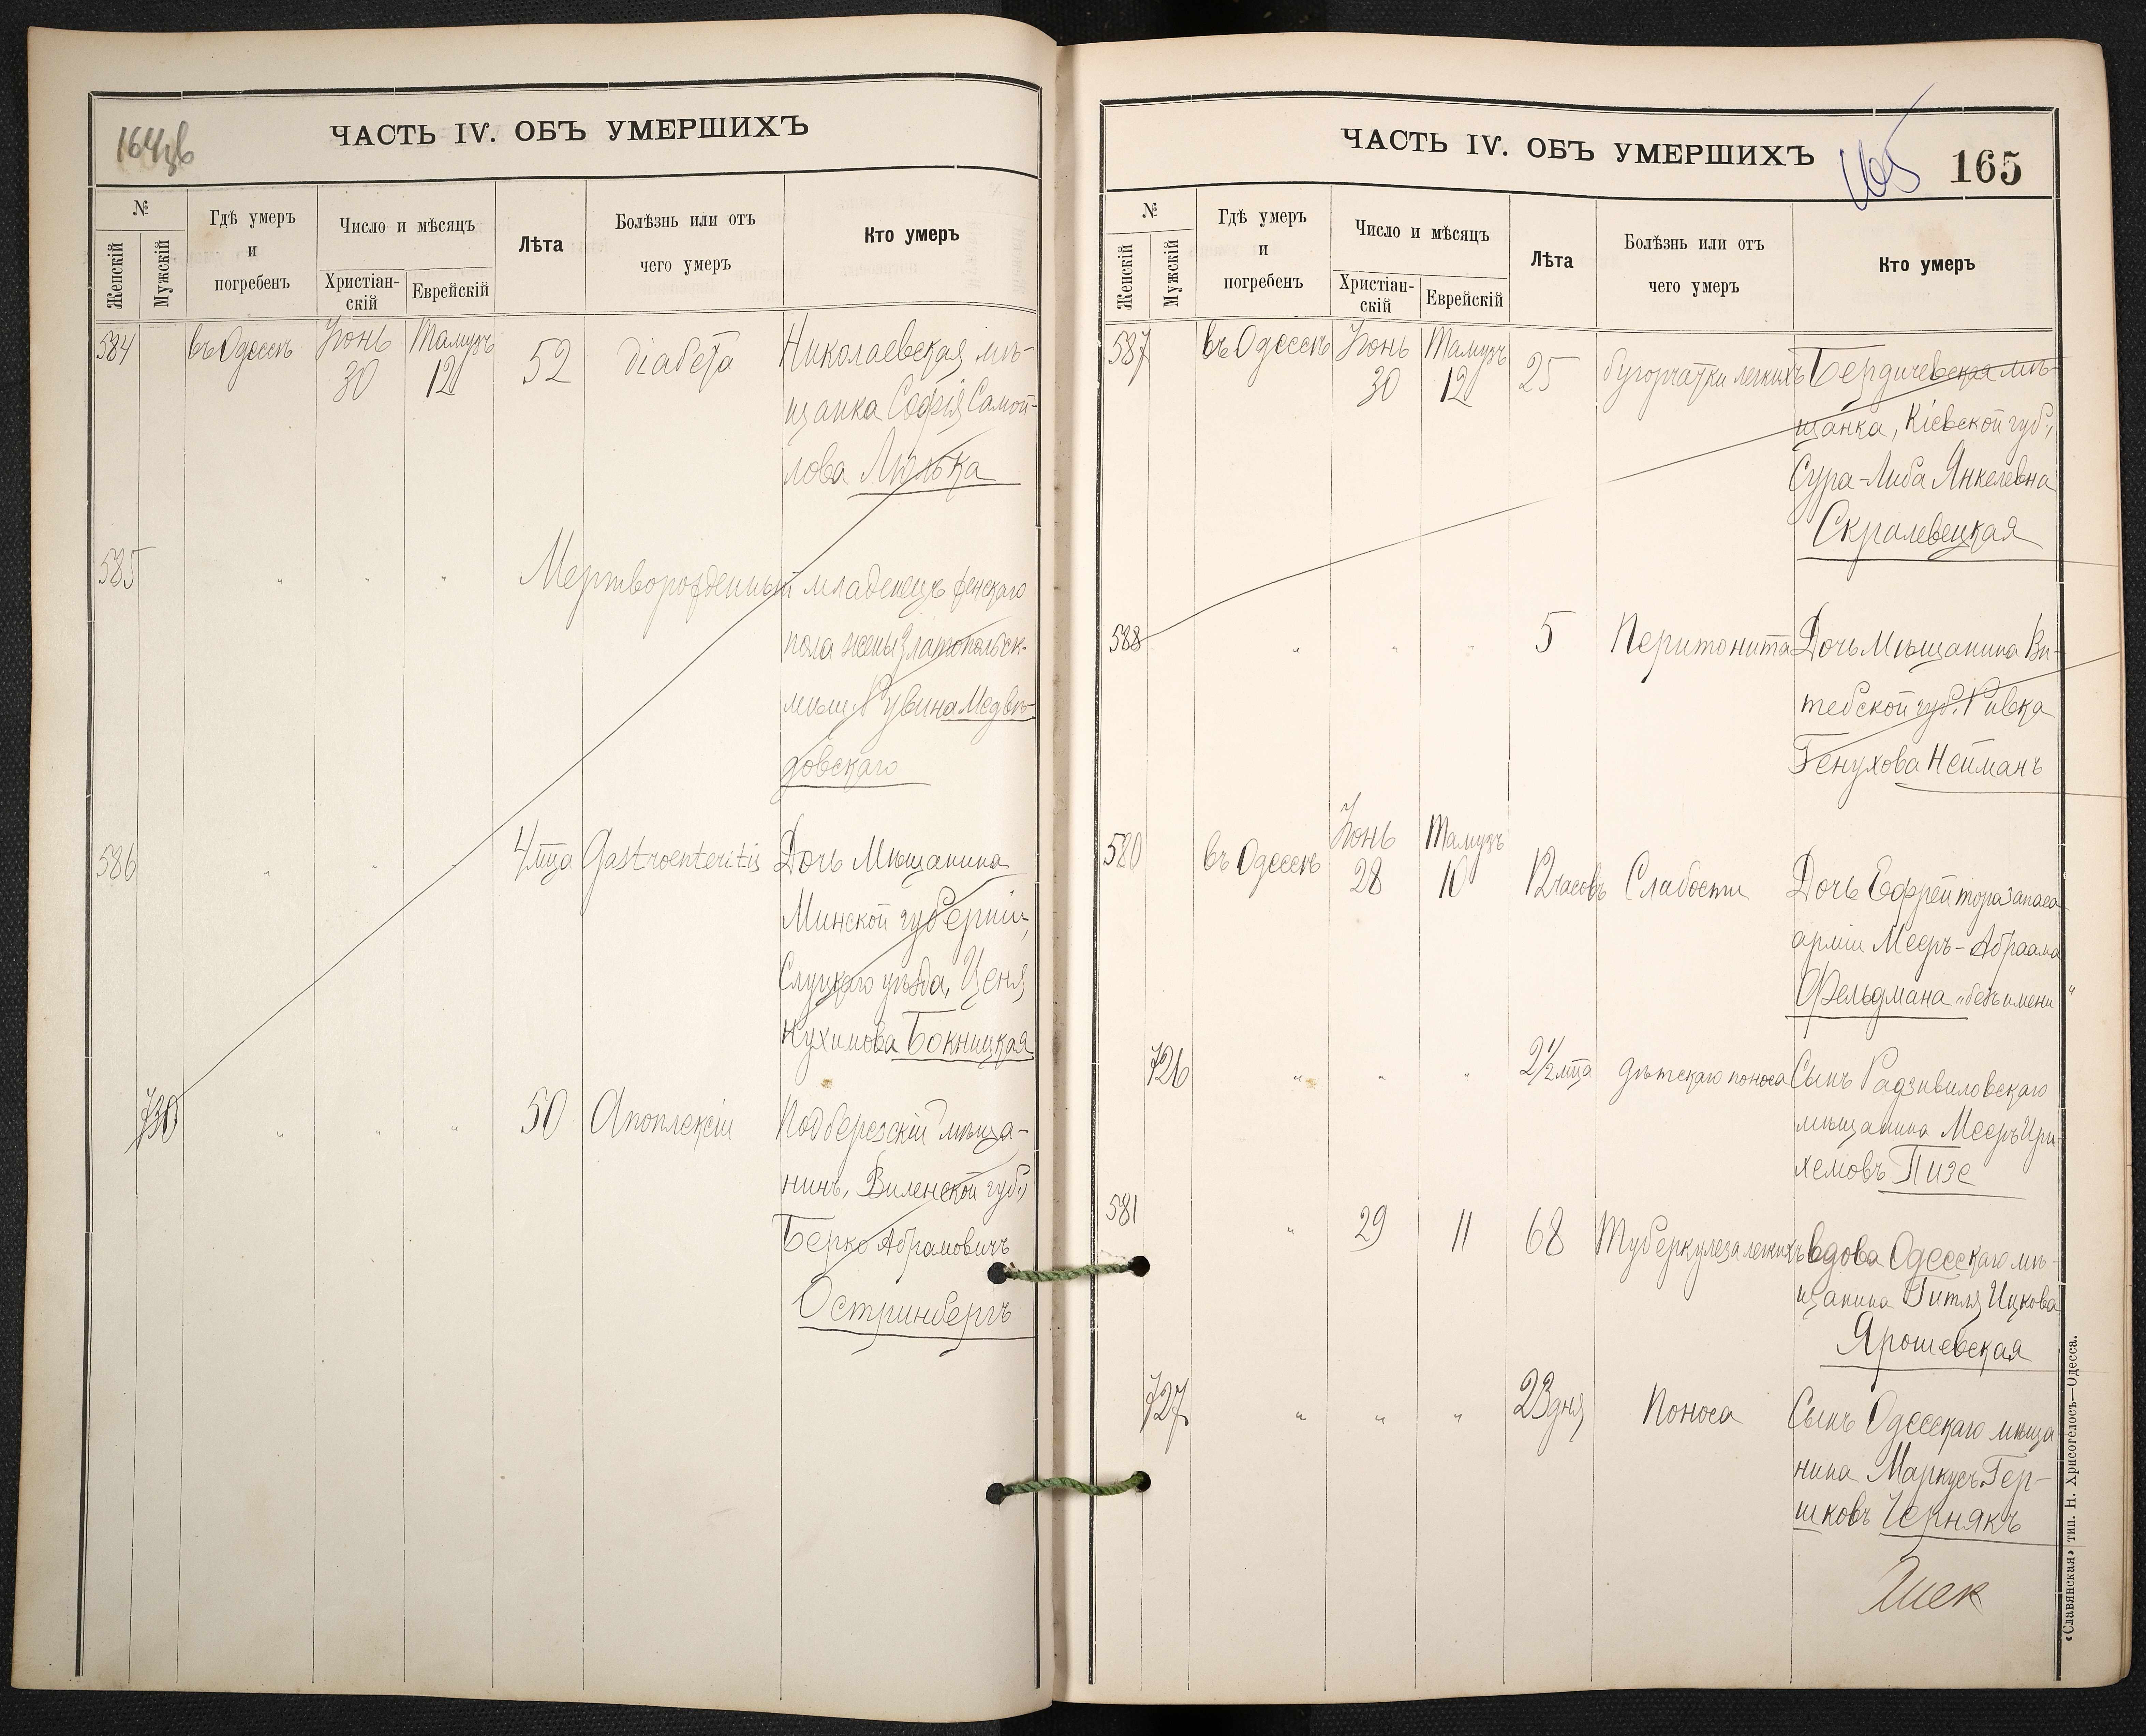 164 об
ЧАСТЬ IV. ОБЪ УМЕРШИХЪ
№
Женскій
Мужскій
Гдѣ умеръ
и
погребенъ
Число и мѣсяцъ
Христіан-
скій
Еврейскій
Лѣта
Болѣзнь или отъ
чего умеръ
Кто умеръ
584 въ Одессѣ Іюнь 30 Тамузъ 12 52 діабета Николаевская мѣ-
щанка Софія Самой-
лова
585 " " " Мертворожденный младенецъ женскаго
пола жены Златопольск.
мѣщ. Рувина Медвѣ-
довскаго
586 " " " 4 мца Gastroenteritis Дочь Мѣщанина
Минской губерніи,
Слуцкаго уѣзда, Ценя
Нухимова Бокницкая
730 " " " 50 Апоплексіи Подберезскій мѣща-
нинъ, Виленской губ.,
Берко Абрамовичъ
Остринбергъ
ЧАСТЬ IV. ОБЪ УМЕРШИХЪ
165
165
№
Женскій
Мужскій
Гдѣ умеръ
и
погребенъ
Число и мѣсяцъ
Христіан-
скій
Еврейскій
Лѣта
Болѣзнь или отъ
чего умеръ
Кто умеръ
587 въ Одессѣ Іюнь 30 Тамузъ 12 25 бугорчатки легкихъ Бердичевская мѣ-
щанка, Кіевской губ.,
Сура-Либа Янкелевна
Скралевецкая
588 " " " 5 Перитонита Дочь Мѣщанина Ви-
тебской губ. Ривка
Генухова Нейманъ
580 въ Одессѣ Іюнь 28 Тамузъ 10 12 часовъ Слабости Дочь Ефрейтора запаса
арміи Мееръ-Абраама
Фельдмана "безъ имени"
726 " " " 2½ мца дѣтскаго поноса Сынъ Радзивиловскаго
мѣщанина Мееръ
Пизе
581 " 29 11 68 Туберкулеза легкихъ вдова Одесскаго мѣ-
щанина Гитля Ицкова
Ярошевская
727 " " " 23 дня Поноса Сынъ Одесскаго мѣща
нина Маркусъ Гер-
шковъ Чернякъ
«Славянская» тип. Н. Хрисогелосъ—Одесса.